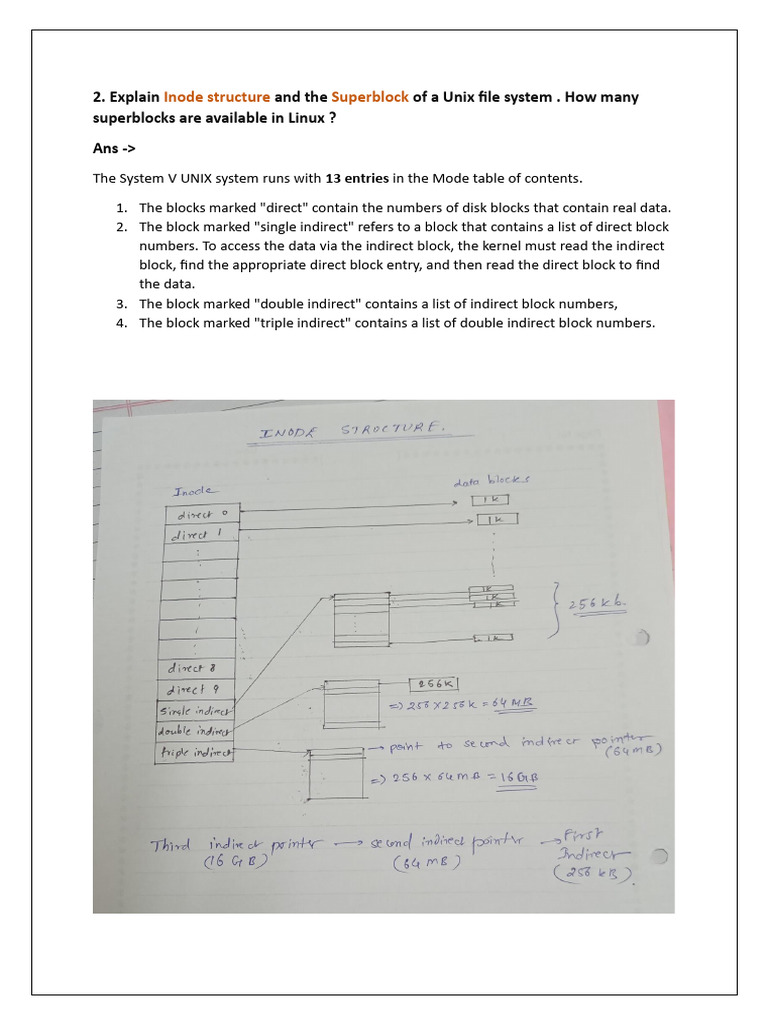 2. Explain Inode structure and the Superblock of a Unix file system . How many
superblocks are available in Linux ?
Ans ->
The System V UNIX system runs with 13 entries in the Mode table of contents.
1. The blocks marked "direct" contain the numbers of disk blocks that contain real data.
2. The block marked "single indirect" refers to a block that contains a list of direct block
numbers. To access the data via the indirect block, the kernel must read the indirect
block, find the appropriate direct block entry, and then read the direct block to find
the data.
3. The block marked "double indirect" contains a list of indirect block numbers,
4. The block marked "triple indirect" contains a list of double indirect block numbers.
INODE STRUCTURE.
Inode
data blocks
direct 0
1K
direct 1
1K
1K
1K
1K
256kb.
1K
direct 8
direct 9
256K
single indirect
=) 256 x 256K = 64 MB
double indirect
triple indirect
→ point to second indirect pointer
(64MB)
=) 256 x 64 MB = 16GB
Third indirect pointer → second indirect pointer → First
Indirect
(16 GB)
(64 MB)
(256 kB).